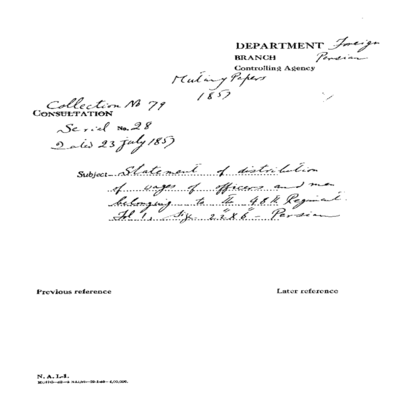 DEPARTMENT Foreign
BRANCH Persian
Controlling Agency
Mutiny Papers
1857
Collection No 79
CONSULTATION
Serial No. 28
Dated 23 July 1857
Subject Statement of distribution
of wages of officers and men
belonging to the 9th Regiment.
Fol 1, Size - Persian
Previous reference
Later reference
N. A. I.-1.